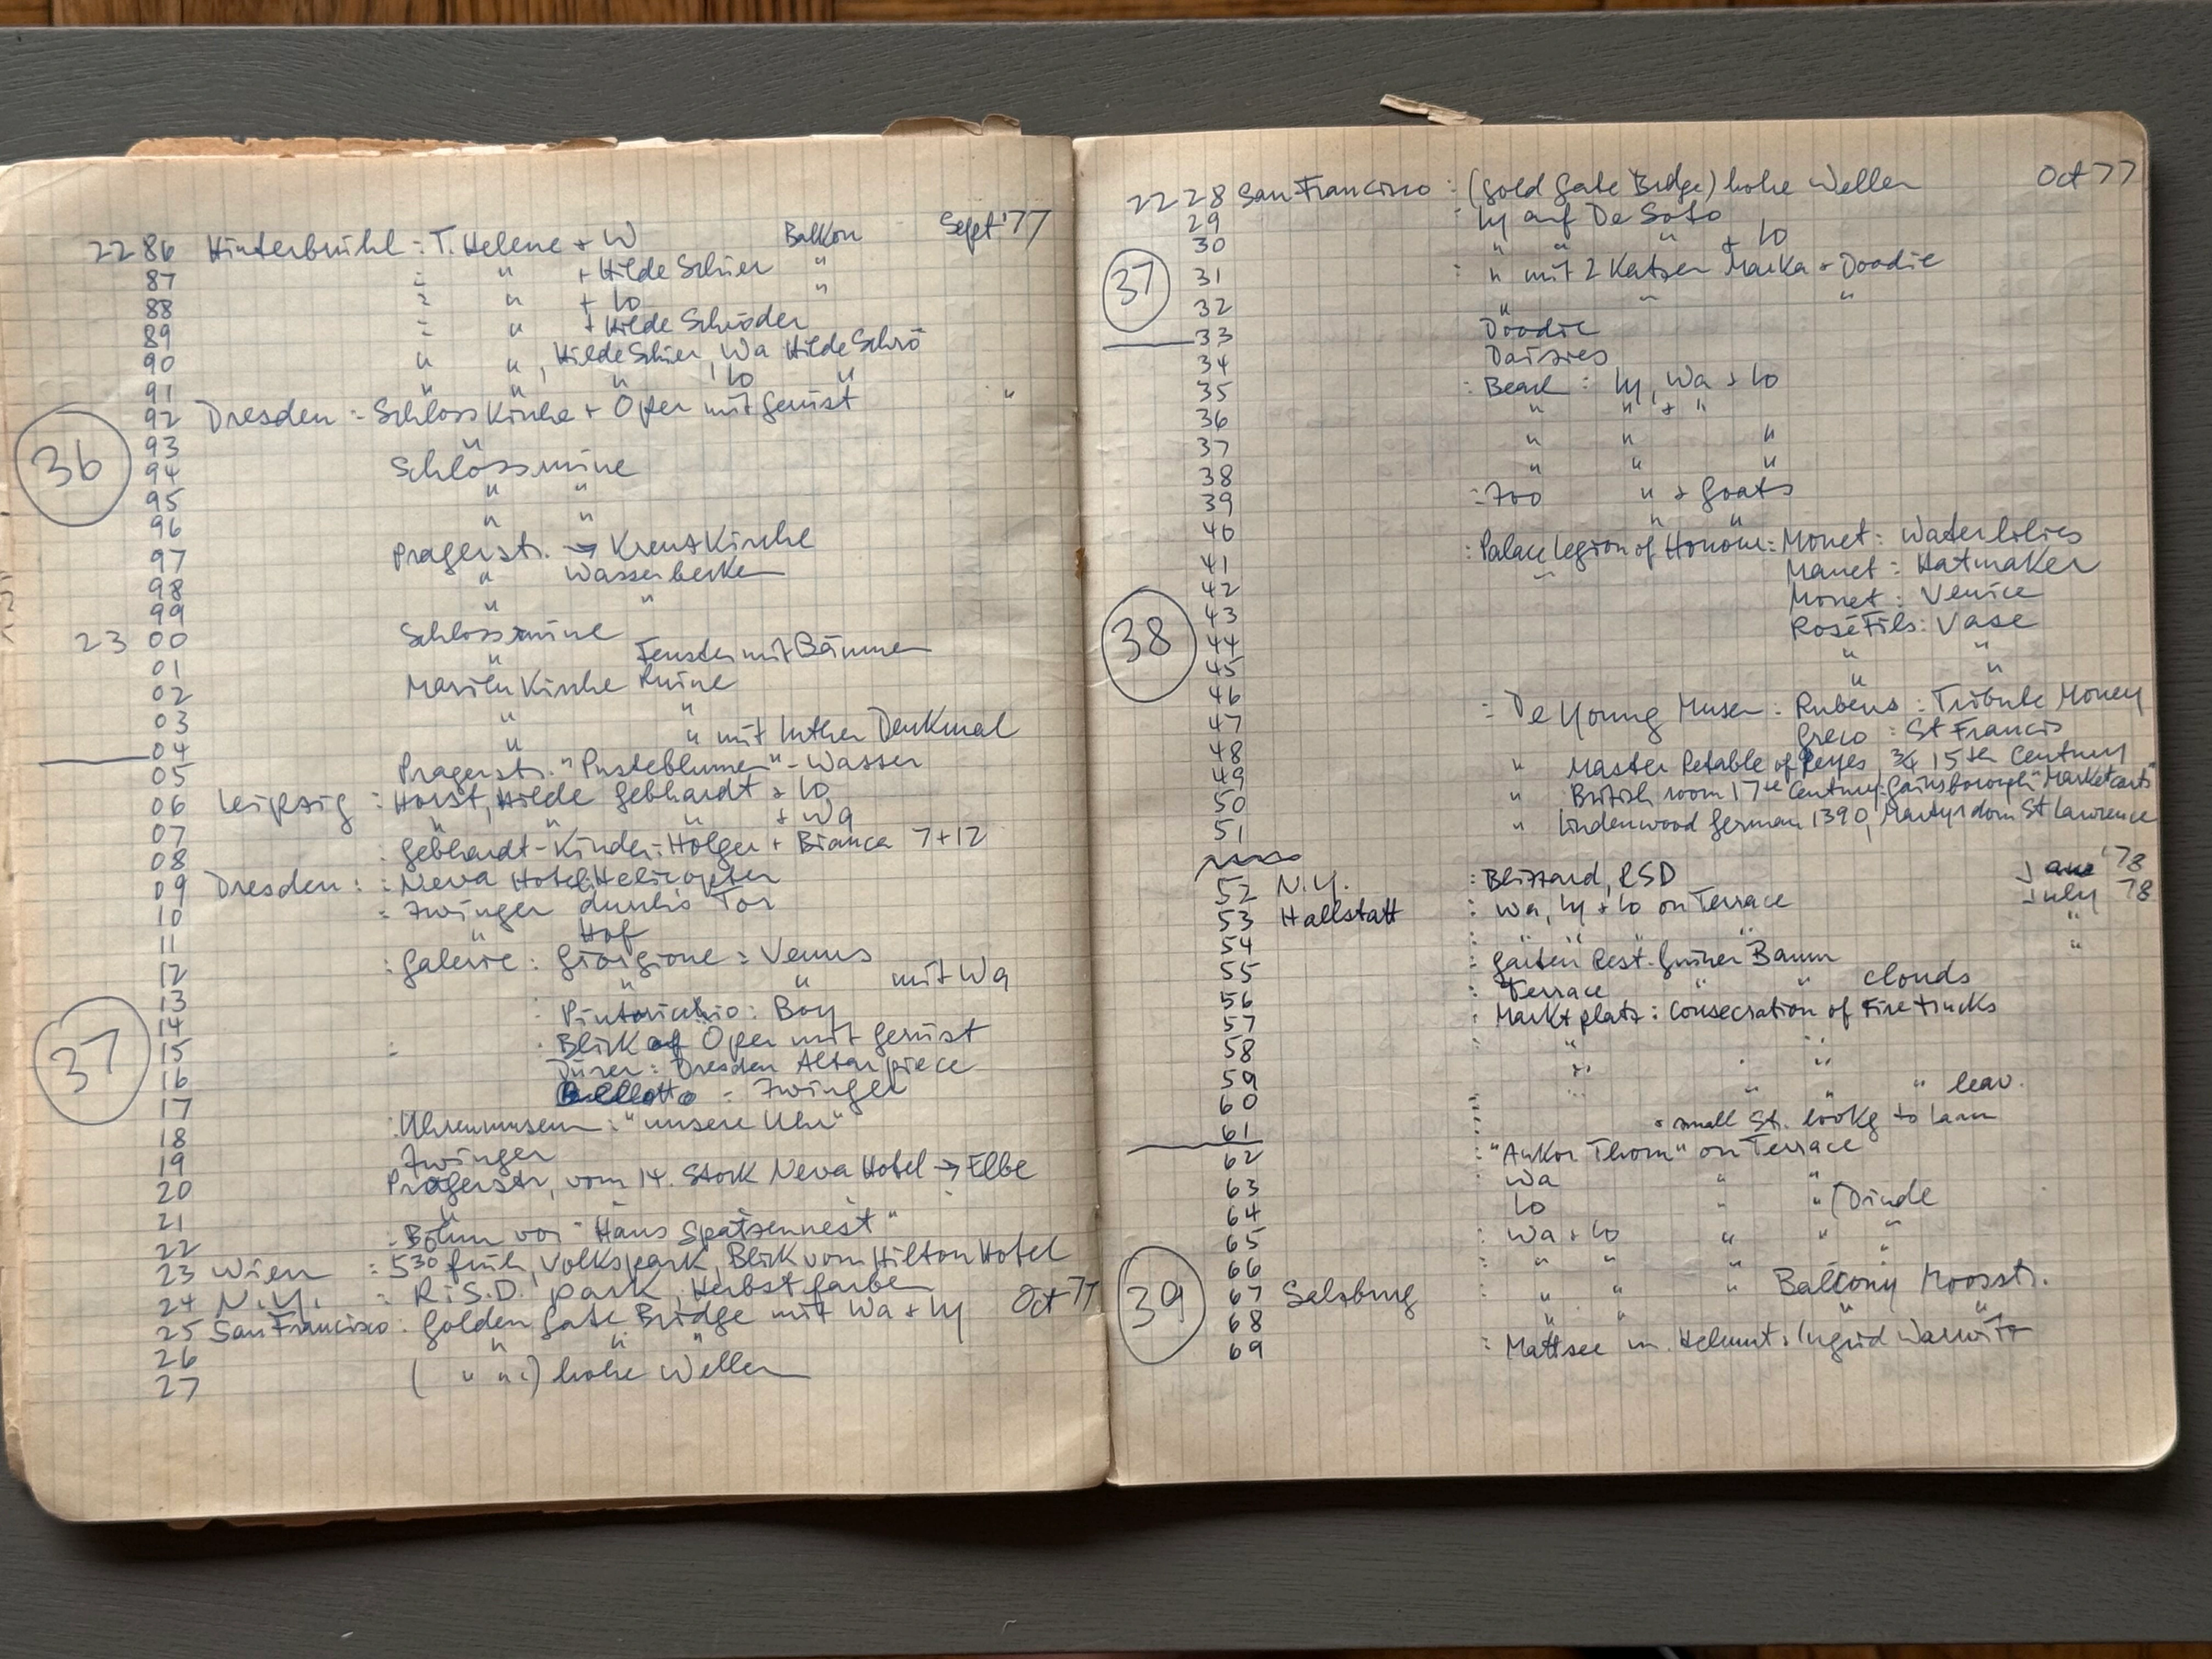 2286 Hinterbrühl : T. Helene + W Balkon Sept '77
87 : " + Hilde Schier "
88 : " + Lo "
89 : " + Hilde Schröder
90 " " , Hilde Schier, Wa Hilde Schrö
91 " " " , Lo "
92 Dresden : Schloss Kirche + Oper mit Gerüst "
36
93 "
94 Schlossruine
95 " "
96 " "
97 Pragerstr. → Kreuzkirche
98 " Wasserbecken
99 " "
2300 Schlossruine
01 " Fenster mit Bäumen
02 Marienkirche Ruine
03 " "
04 " " mit Luther Denkmal
05 Pragerstr. "Pusteblumen" - Wasser
06 Leipzig : Horst, Hilde Gebhardt + Lo
07 " " " + Wa
08 : Gebhardt-Kinder: Holger + Bianca 7+12
09 Dresden : : Neva Hotel: Helicopter
10 : Zwinger durch's Tor
11 " Hof
12 : Galerie : Giorgione : Venus
13 " " mit Wa
37
14 : Pintoricchio : Boy
15 : : Blick auf Oper mit Gerüst
16 Dürer : Dresden Altarpiece
17 Bellotto : Zwinger
18 : Uhrenmuseum : "unsere Uhr"
19 Zwinger
20 Pragerstr, vom 14. Stock Neva Hotel → Elbe
21 "
22 : Böhm vor "Haus Spatzennest"
23 Wien : 5³⁰ früh, Volkspark, Blick vom Hilton Hotel
24 N.Y. : R.S.D. park, Herbstfarben
25 San Francisco : Golden Gate Bridge mit Wa + Ly Oct 77
26 " " "
27 ( " " ) hohe Wellen
2228 San Francisco : (Gold Gate Brdge) hohe Wellen Oct 77
29 : Ly auf De Soto
30 " " " + Lo
37
31 : " mit 2 Katzen Marka + Doodie
32 " " "
33 Doodie
34 Daisies
35 : Beach : Ly, Wa + Lo
36 " " + "
37 " " "
38 " " "
39 : Zoo " + Goats
40 " "
41 : Palace Legion of Honour : Monet : Waterlilies
42 " Manet : Hatmaker
43 Monet : Venice
38
44 Rosé Fils : Vase
45 " "
46 " "
47 : De Young Museum : Rubens : Tribute Money
48 Greco : St Francis
49 " Master Retable of Reyes, 3/4 15th Century
50 " British room 17th Century: Gainsborough "Market carts"
51 " Lindenwood German 1390, Martyrdom St Lawrence
52 N.Y. : Blizzard, RSD Jan '78
53 Hallstatt : Wa, Ly + Lo on Terrace July 78
54 : " " " " "
55 : Garten Rest. Grüner Baum "
56 : Terrace " " clouds
57 : Marktplatz : Consecration of Firetrucks
58 : " " "
59 " " "
60 : " " " " leav.
61 : small St. lookg to Lahn
62 : "Ankor Thom" on Terrace
63 : Wa " "
64 Lo " " (Dirndl
65 : Wa + Lo " " "
66 : " " " "
39
67 Salzburg : " " " Balcony Moosstr.
68 " " " "
69 : Mattsee m. Helmut + Ingrid